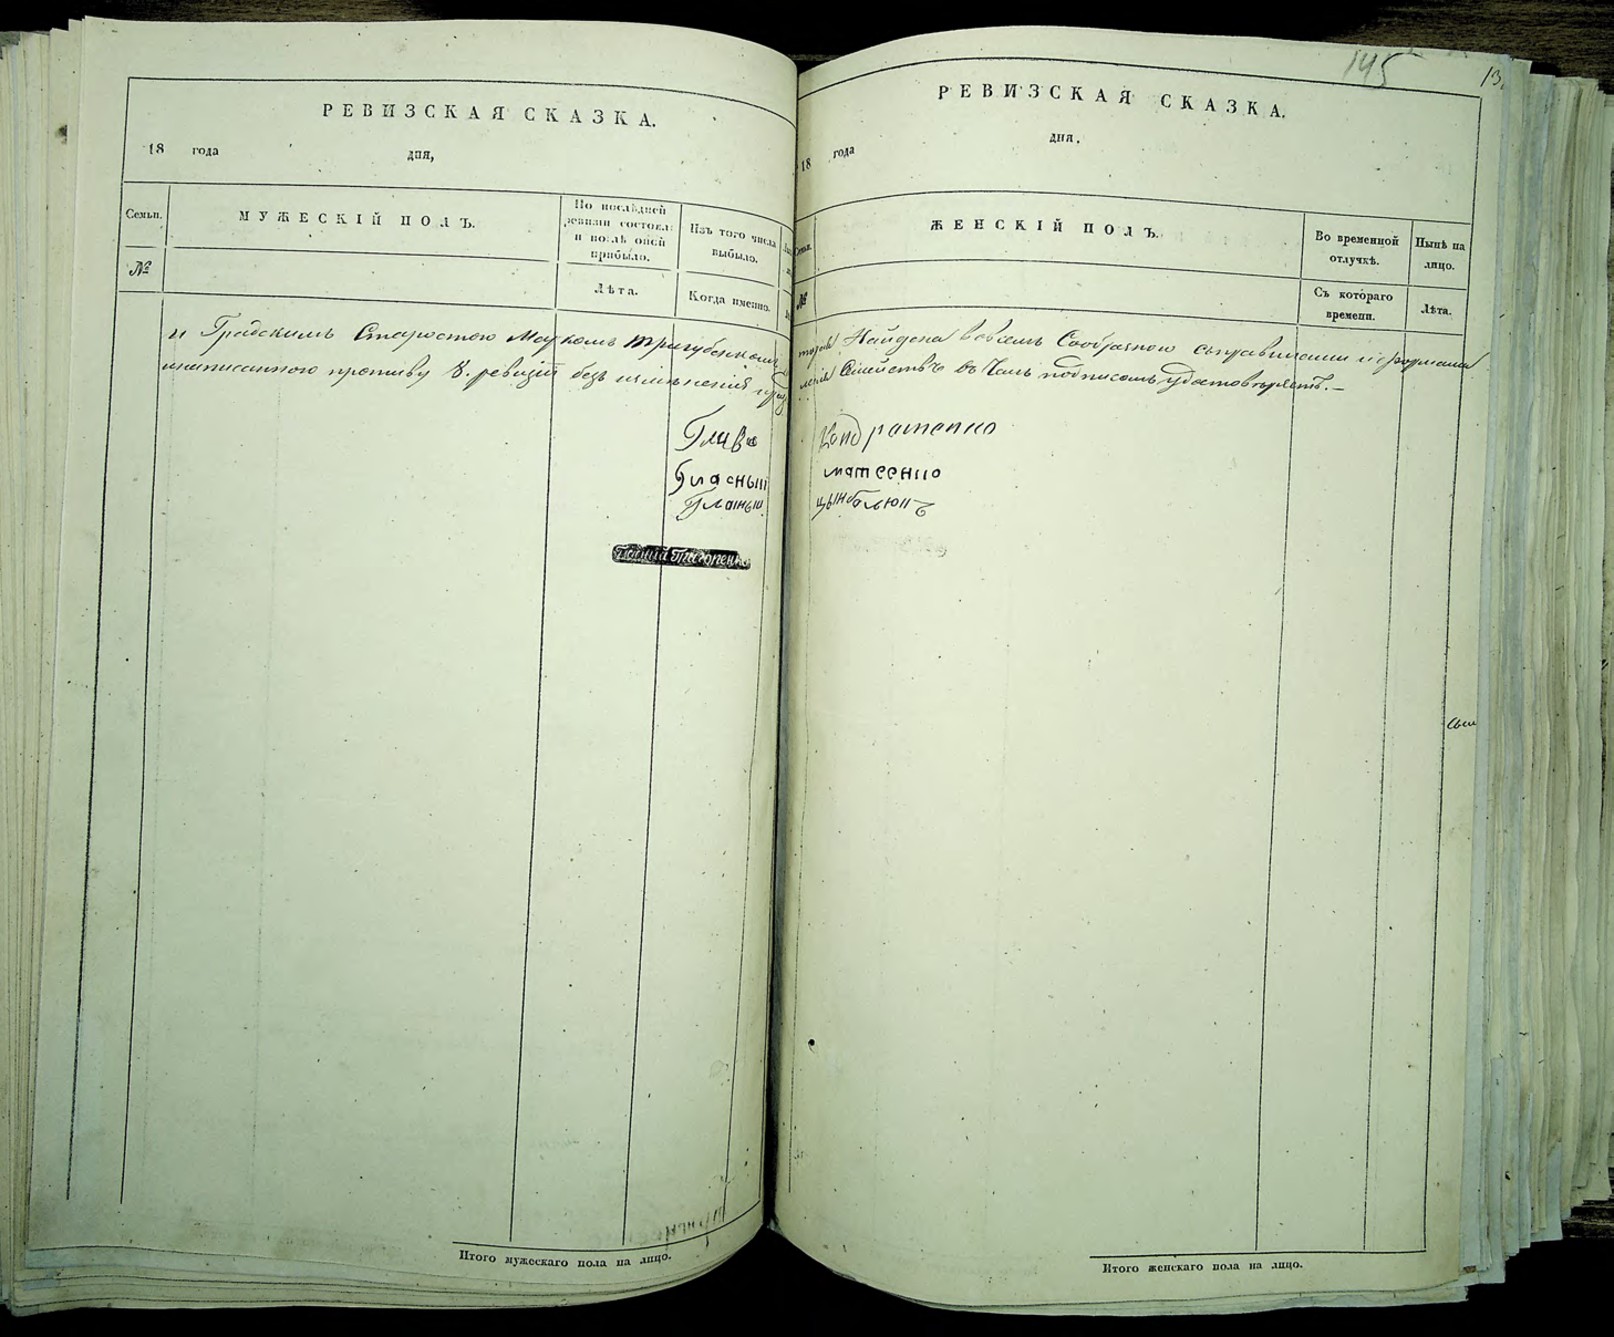 РЕВИЗСКАЯ СКАЗКА.
18 года дня,
Семьи.
МУЖЕСКІЙ ПОЛЪ.
По послѣдней ревизіи состояло и послѣ оной прибыло.
Изъ того числа выбыло.
№
Лѣта.
Когда именно.
и Градскимъ Старостою Маркомъ Тригубенкомъ
противу 8. ревизіи безъ измѣненія
Глава
Гласный
Гласный
Итого мужескаго пола на лицо.
145
13
РЕВИЗСКАЯ СКАЗКА.
18 года дня,
Семьи.
ЖЕНСКІЙ ПОЛЪ.
Во временной отлучкѣ.
Нынѣ на лицо.
№
Съ котораго времени.
Лѣта.
Найдена вовсемъ Сообразною съправилами
Семействъ въ Чемъ подписомъ удостовѣряетъ.—
Кондратенко
матсенко
цынбалюкъ
Итого женскаго пола на лицо.